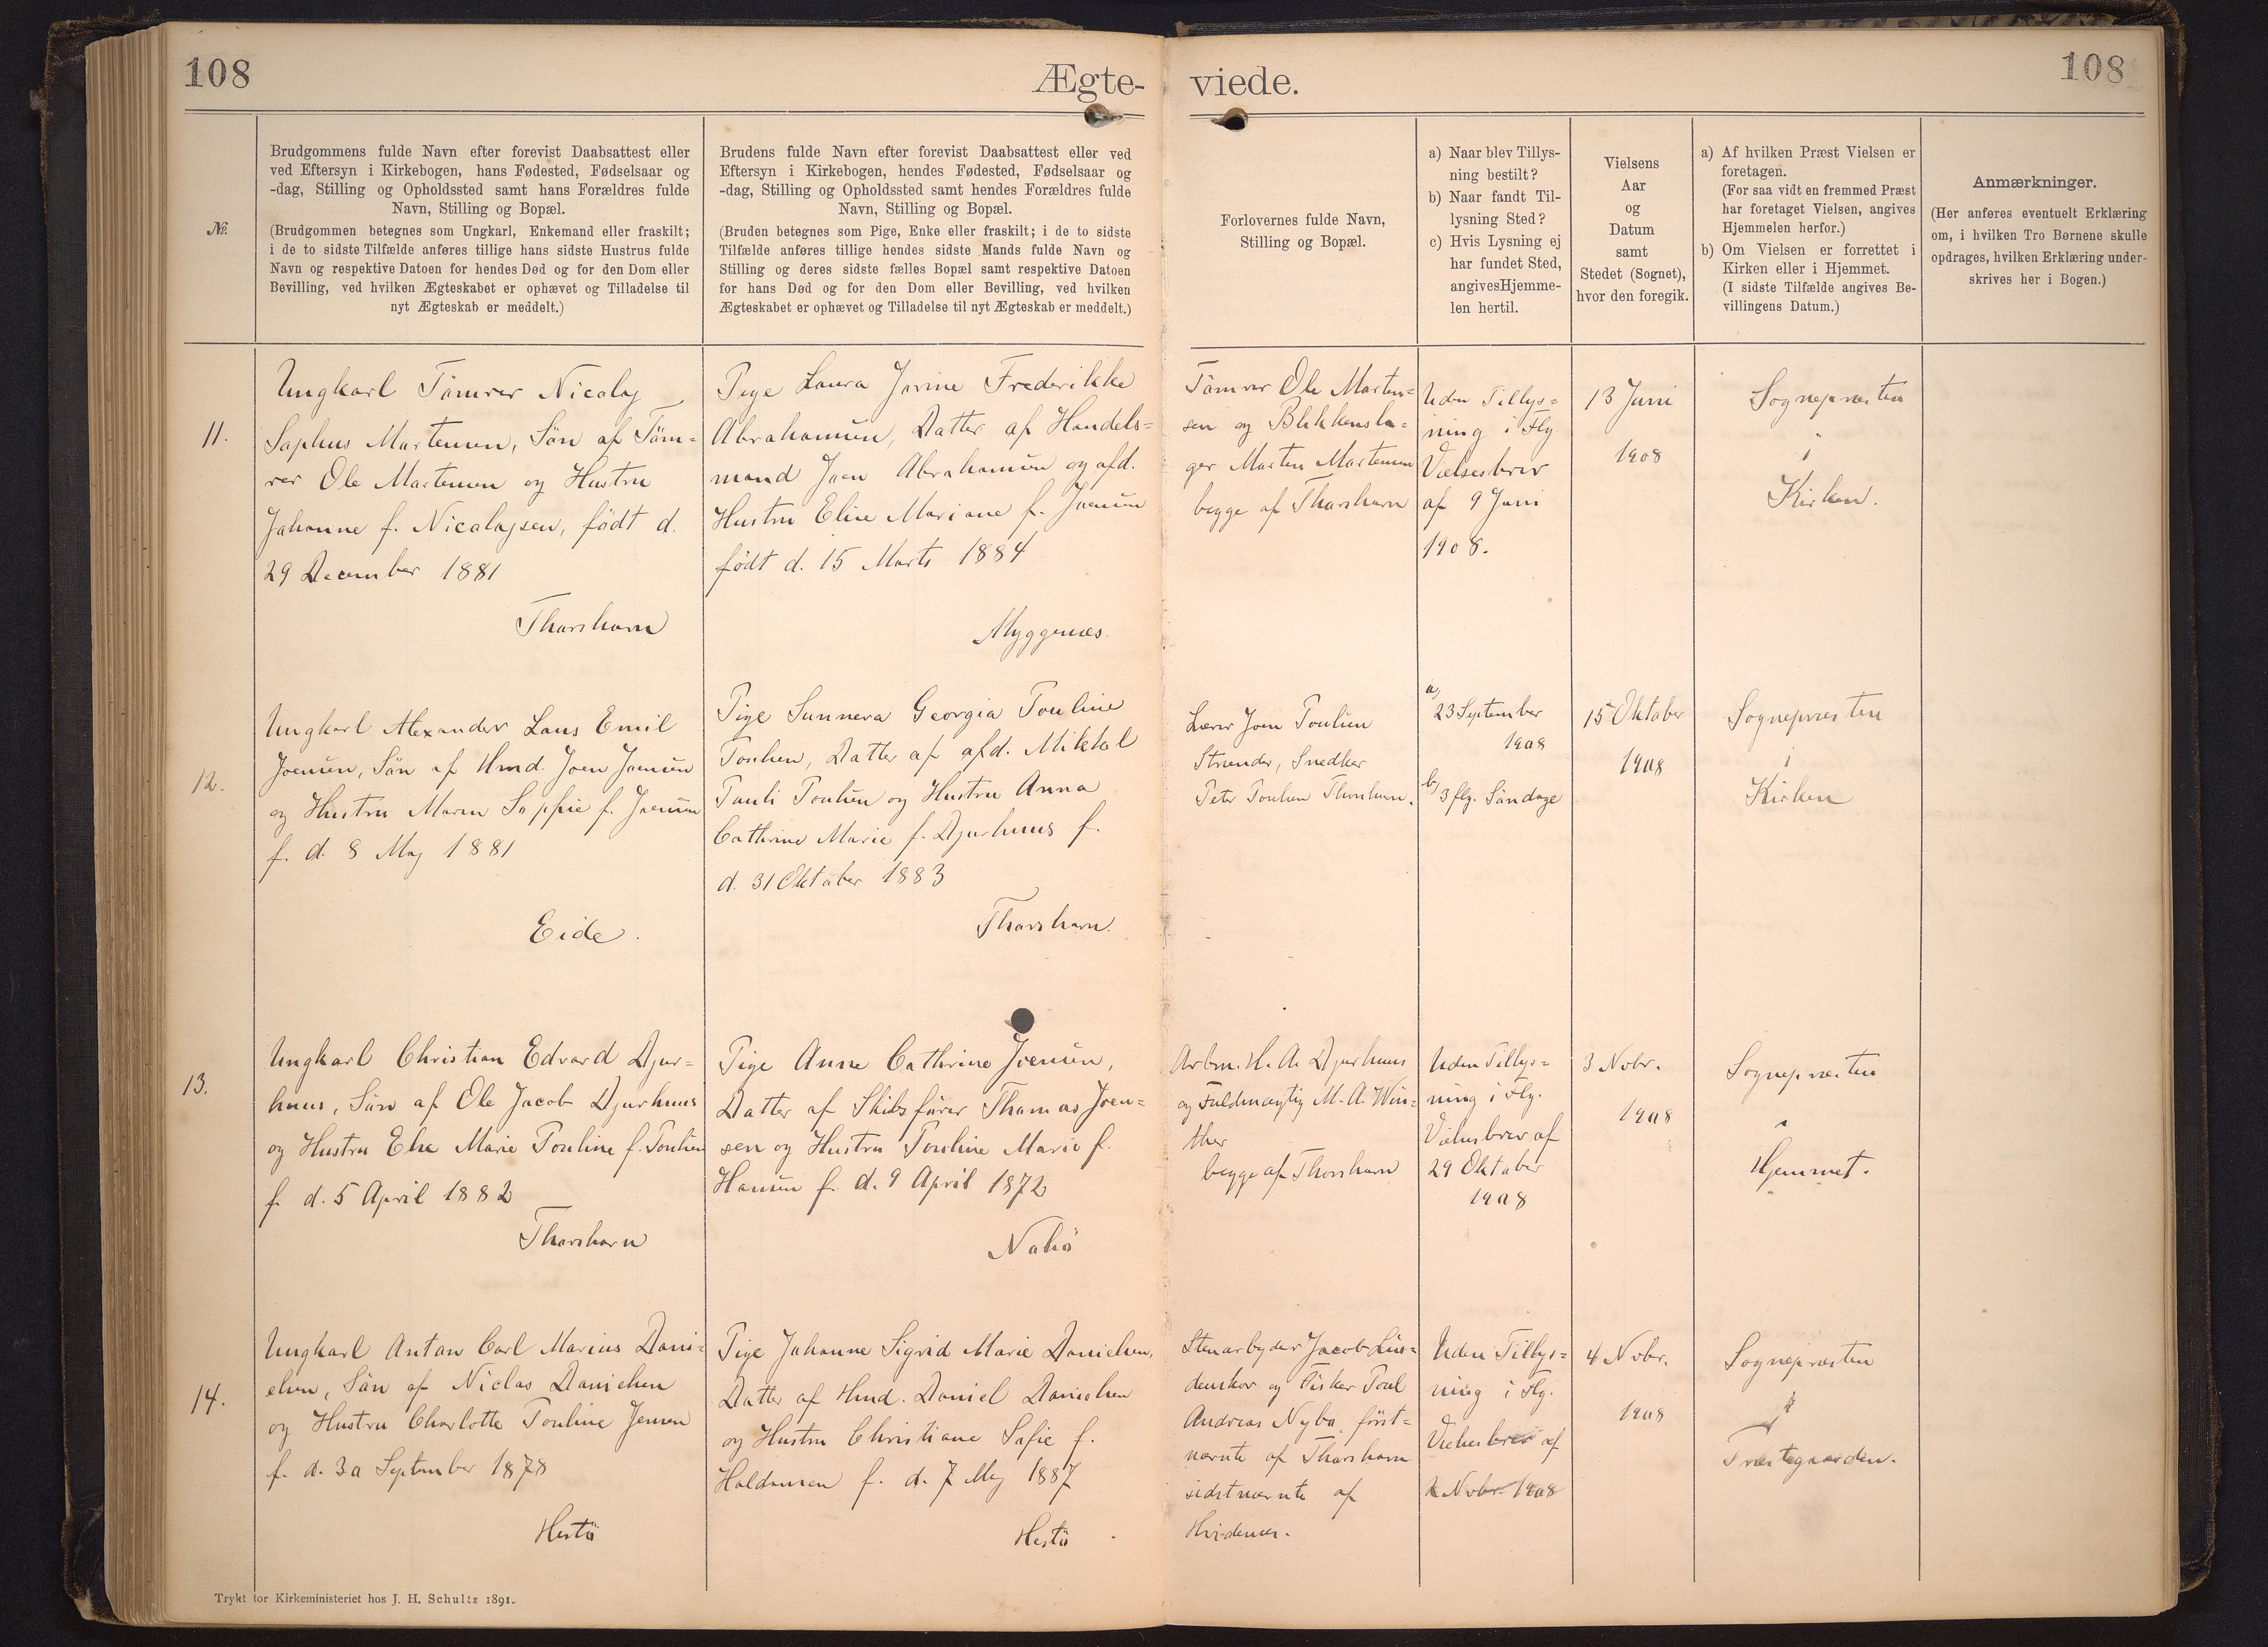 108
Ægte-
viede.
108
№.
Brudgommens fulde Navn efter forevist Daabsattest eller
ved Eftersyn i Kirkebogen, hans Fødested, Fødselsaar og
-dag, Stilling og Opholdssted samt hans Forældres fulde
Navn, Stilling og Bopæl.
(Brudgommen betegnes som Ungkarl, Enkemand eller fraskilt;
i de to sidste Tilfælde anføres tillige hans sidste Hustrus fulde
Navn og respektive Datoen for hendes Død og for den Dom eller
Bevilling, ved hvilken Ægteskabet er ophævet og Tilladelse til
nyt Ægteskab er meddelt.)
Brudens fulde Navn efter forevist Daabsattest eller ved
Eftersyn i Kirkebogen, hendes Fødested, Fødselsaar og
-dag, Stilling og Opholdssted samt hendes Forældres fulde
Navn, Stilling og Bopæl.
(Bruden betegnes som Pige, Enke eller fraskilt; i de to sidste
Tilfælde anføres tillige hendes sidste Mands fulde Navn og
Stilling og deres sidste fælles Bopæl samt respektive Datoen
for hans Død og for den Dom eller Bevilling, ved hvilken
Ægteskabet er ophævet og Tilladelse til nyt Ægteskab er meddelt.)
Forlovernes fulde Navn,
Stilling og Bopæl.
a) Naar blev Tillys-
ning bestilt?
b) Naar fandt Til-
lysning Sted?
c) Hvis Lysning ej
har fundet Sted,
angivesHjemme-
len hertil.
Vielsens
Aar
og
Datum
samt
Stedet (Sognet),
hvor den foregik.
a) Af hvilken Præst Vielsen er
foretagen.
(For saa vidt en fremmed Præst
har foretaget Vielsen, angives
Hjemmelen herfor.)
b) Om Vielsen er forrettet i
Kirken eller i Hjemmet.
(I sidste Tilfælde angives Be-
villingens Datum.)
Anmærkninger.
(Her anføres eventuelt Erklæring
om, i hvilken Tro Børnene skulle
opdrages, hvilken Erklæring under-
skrives her i Bogen.)
11.
Ungkarl Tömrer Nicolaj
Sophus Martensen, Sön af Töm-
rer Ole Martensen og Hustru
Johanne f. Nicolajsen, født d.
29 December 1881
Thorshavn
Pige Laura Jovine Frederikke
Abrahamsen, Datter af Handels-
mand Joen Abrahamsen og afd.
Hustru Elise Mariane f. Joensen
født d. 15 Marts 1884
Myggenæs.
Tömrer Ole Marten-
sen og Blikkensla-
ger Morten Martensen
begge af Thorshavn
Uden Tillys-
ning i Flg.
Vielsesbrev
af 9 Juni
1908.
13 Juni
1908
Sognepræsten
i
Kirken.
12.
Ungkarl Alexander Laus Emil
Joensen, Sön af Hmd. Joen Joensen
og Hustru Maren Sophie f. Joensen
f. d. 8 Maj 1881
Eide.
Pige Sunneva Georgia Pouline
Poulsen, Datter af afd. Mikkel
Pauli Poulsen og Hustru Anna
Cathrine Marie f. Djurhuus f.
d. 31 Oktober 1883
Thorshavn.
Lærer Joen Poulsen
Strender, Snedker
Peter Poulsen Thorshavn.
a) 23 September
1908
b) 3 flg. Söndage
15 Oktober
1908
Sognepræsten
i
Kirken
13.
Ungkarl Christian Edvard Djur-
huus, Sön af Ole Jacob Djurhuus
og Hustru Else Marie Pouline f. Poulsen
f. d. 5 April 1882
Thorshavn
Pige Anne Cathrine Joensen,
Datter af Skibsförer Thomas Joen-
sen og Hustru Pouline Marie f.
Hansen f. d. 9 April 1872
Nolsö
Arbm. H. A. Djurhuus
og Fuldmægtig M. A. Win-
ther
begge af Thorshavn
Uden Tillys-
ning i Flg.
Vielsesbrev af
29 Oktober
1908
3 Nobr.
1908
Sognepræsten
i
Hjemmet.
14.
Ungkarl Anton Carl Marius Dani-
elsen, Sön af Niclas Danielsen
og Hustru Charlotte Pouline Jensen
f. d. 30 September 1878
Hestö
Pige Johanne Sigrid Marie Danielsen,
Datter af Hmd. Daniel Danielsen
og Hustru Christiane Sofie f.
Holdansen f. d. 7 Maj 1887
Hestö
Stenarbejder Jacob Lin-
denskov og Fisker Poul
Andreas Nybo, först-
nævnte af Thorshavn
sidstnævnte af
Hvidenæs.
Uden Tillys-
ning i Flg.
Vielsesbrev af
Nobr. 1908
4 Nobr.
1908
Sognepræsten
i
Præstegaarden.
Trykt for Kirkeministeriet hos J. H. Schultz 1891.